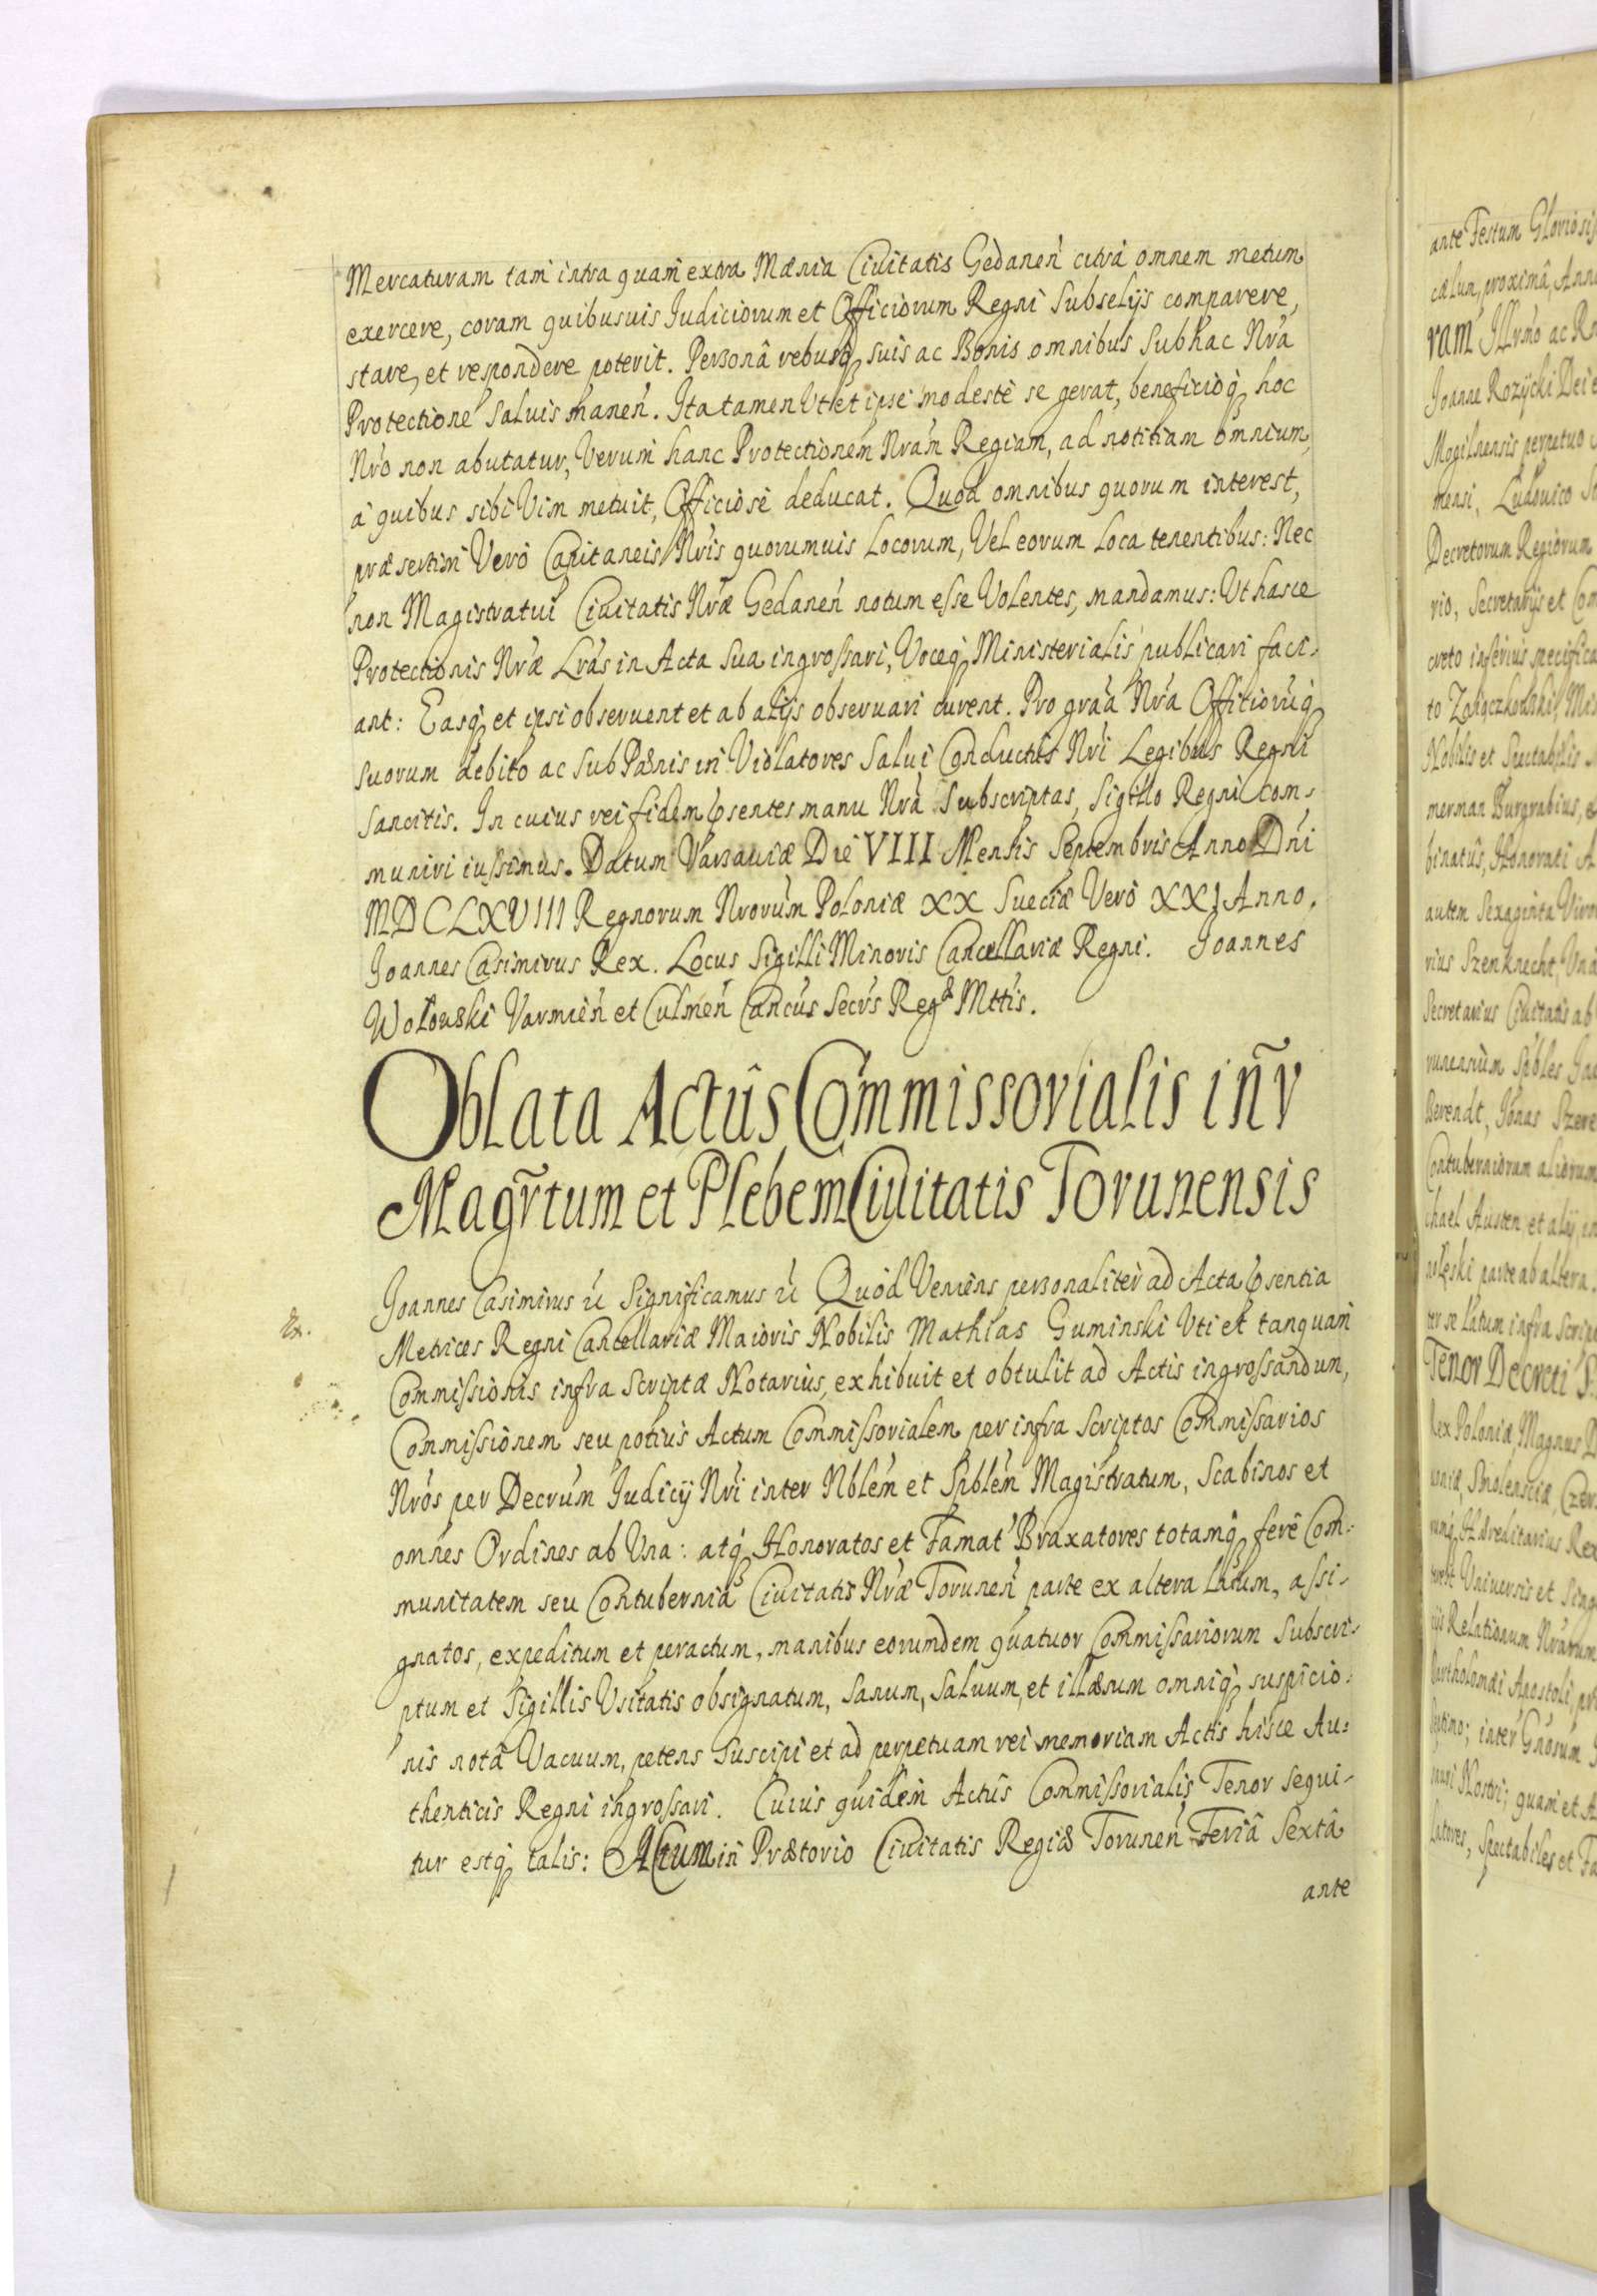 Mercaturam tam intra quam extra Mænia Ciuitatis Gedanen̄ citrà omnem metum
exercere, coram quibusuis Iudiciorum et Officiorum Regni Subselijs comparere,
stare, et respondere poterit. Personâ rebusq suis ac Bonis omnibus Sub hac Nrâ
Protectione Saluis manen̄. Ita tamen Vt et ipse modestè se gerat, beneficioq hoc
Nrō non abutatur, Verum hanc Protectionem Nram̄ Regiam, ad notitiam omnium,
à quibus sibi Vim metuit, Officiosè deducat. Quod omnibus quorum interest,
præsertim Verò Capitaneis Nrīs quorumuis Locorum, Vel eorum Loca tenentibus: Nec
non Magistratui Ciuitatis Nræ Gedanen̄ notum esse Volentes, mandamus: Vt hasce
Protectionis Nræ Lrās in Acta Sua ingrossari, Voceq Ministerialis publicari faci-
ant: Easq et ipsi obseruent et ab alijs obseruari curent. Pro graā Nrā Officiorūq
suorum debito ac Sub Pænis in Violatores Salui Conductûs Nrī Legibus Regni
Sancitis. In cuius rei fidem pṡentes manu Nrâ Subscriptas, Sigillo Regni com-
muniri iussimus. Datum Varsauiæ Die VIII Mensis Septembris Anno Dnī
MDCLXVIII Regnorum Nrorum̄ Poloniæ XX Sueciæ Verò XXI Anno.
Joannes Casimirus Rex. Locus Sigilli Minoris Cancellariæ Regni. Joannes
Wołowski Varmien̄ et Culmen̄ Cancūs Secrūs Regæ Mttis.
Oblata Actûs Commissorialis in̄r
Magr̄tum et Plebem Ciuitatis Torunensis
Joannes Casimirus &c Significamus &c Quòd Veniens personaliter ad Acta pṡentia
Metrices Regni Cancellariæ Maioris Nobilis Mathias Guminski Vti et tanquam
&.
Commissionis infra Scriptæ Notarius, exhibuit et obtulit ad Actis ingrossandum,
Commissionem seu potiùs Actum Commissorialem per infra Scriptos Commissarios
Nrōs per Decrum̄ Iudicij Nrī inter Nblem̄ et Spblem̄ Magistratum, Scabinos et
omnes Ordines ab Vna: atq Honoratos et Famat' Braxatores totamq ferè Com-
munitatem seu Contubernia Ciuitatis Nræ Torunen̄ parte ex altera Latum, assi-
gnatos, expeditum et peractum, manibus eorundem quatuor Commissariorum Subscri-
ptum et Sigillis Vsitatis obsignatum, Sanum, Saluum, et illæsum omniq suspicio-
nis notâ Vacuum, petens Suscipi et ad perpetuam rei memoriam Actis hisce Au-
thenticis Regni ingrossari. Cuius quidem Actûs Commissorialis Tenor Sequi-
tur estq talis: Actum in Prætorio Ciuitatis Regiæ Torunen̄ Feriâ Sextâ
ante
ante Festum Gloriosis
cælum, proximâ, Anno
ram Illrmo ac R
Joanne Rozycki Dei
Mogilnensis perpetuo
mensi, Ludouico
Decretorum Regiorum
rio, Secretarijs et Com
creto inferius specifica
Nobilis et Spectabilis
merman Burgrabius, e
binatûs, Honorati A
autem Sexaginta Viro
rius Szenknecht, Vna
Secretarius Ciuitatis ab
runensium
Berendt, Jonas Szere
Contuberniorum aliorum
chael Austen et alij
parte ab altera.
ter se Latum infra Script
Tenor Decreti
Rex Poloniæ, Magnus D
uoniæ, Smolensciæ, Czer
Hæreditarius Rex
Vniuersis et Sing
Relationum Nrarum
Bartholomæi Apostoli, pr
inter Gnosum
Nostri; quam et A
Latores, Spectabiles et Fa